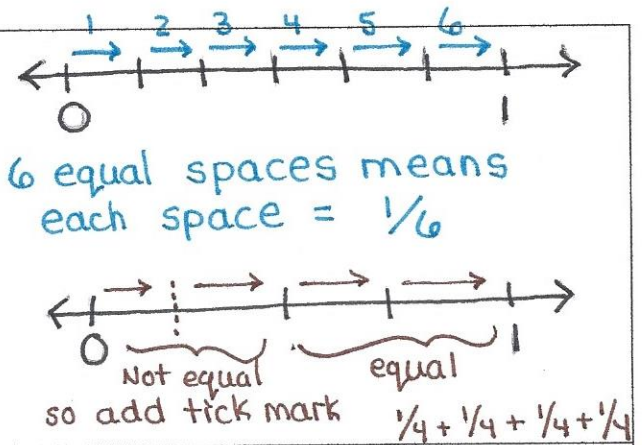 1 2 3 4 5 6
0 1
6 equal spaces means
each space = 1/6
0 1
Not equal equal
so add tick mark 1/4 + 1/4 + 1/4 + 1/4